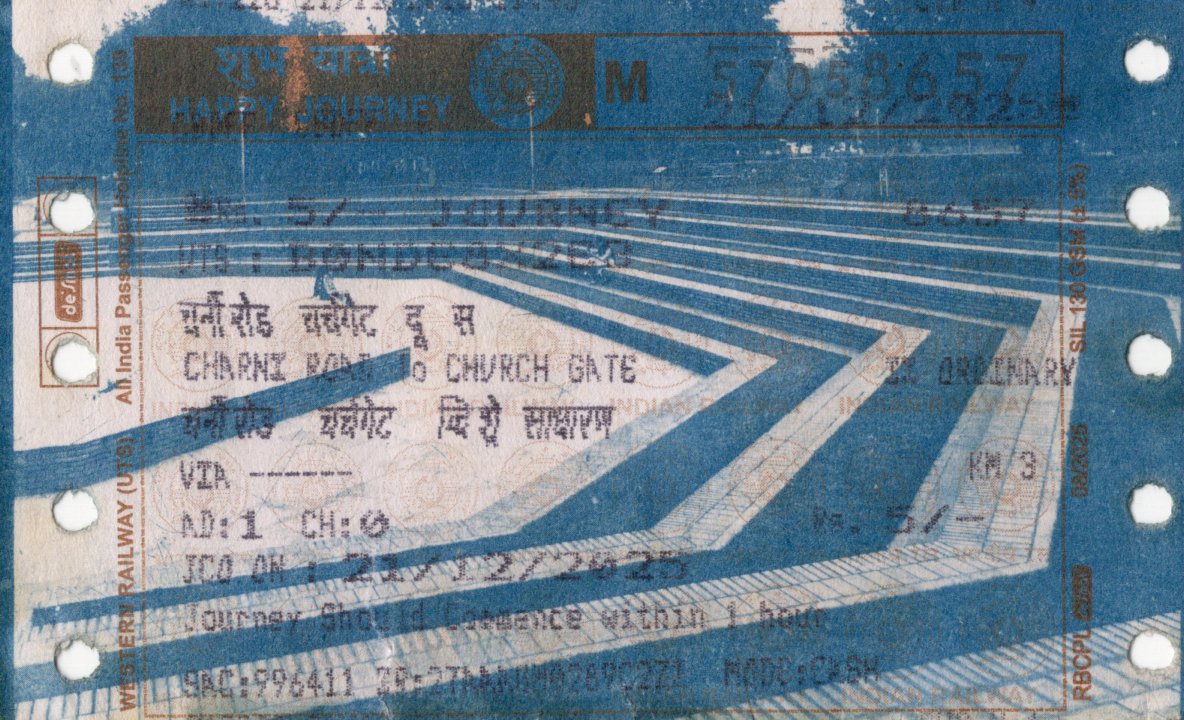 शुभ यात्रा
HAPPY JOURNEY
M 57058657
21/12/2025
RS. 5/- JOURNEY 8657
UTS :
चर्नी रोड चर्चगेट दू स
CHARNI ROAD To CHURCH GATE II ORDINARY
चर्नी रोड चर्चगेट साधारण
VIA ------- KM 3
AD:1 CH:0 Rs. 5/-
JCO ON : 21/12/2025
Journey Should Commence within 1 hour
SAC:996411 MODE:CASH
WESTERN RAILWAY (UTS) All India Passenger Helpline No. 139
SIL 130 GSM (± 5%)
08/2025
RBCPL
INDIAN RAILWAY